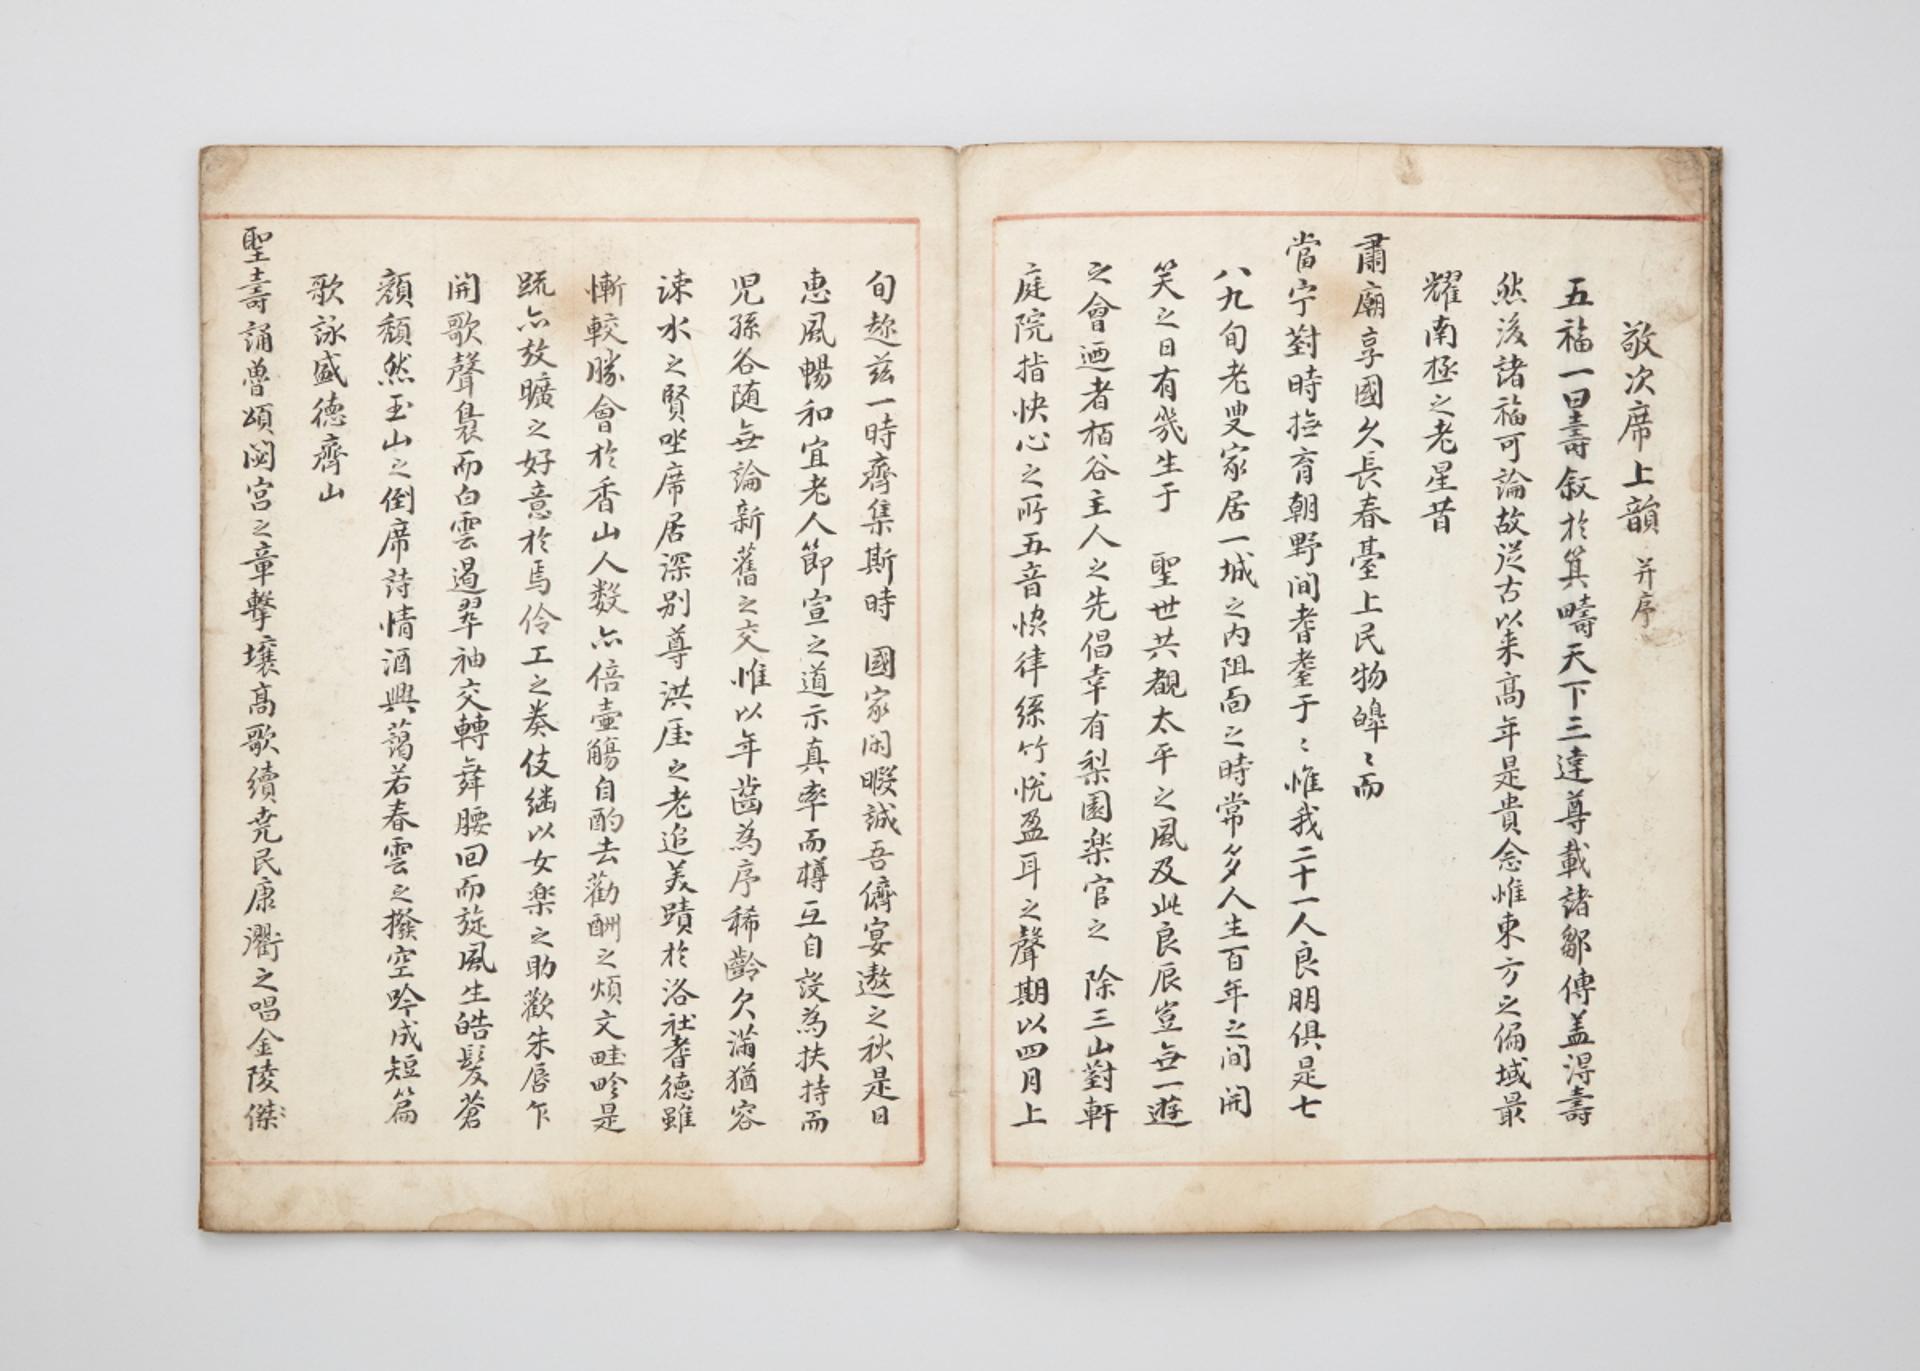 敬次席上韻 并序
五福一曰壽叙於箕疇天下三達尊載諸鄒傳盖淂壽
然後諸福可論故從古以来髙年是貴念惟東方之偏域最
耀南極之老星昔
肅廟享國久長春臺上民物皥〻而
當宁對時撫育朝野間耆耋于〻惟我二十一人良朋俱是七
八九旬老叟家居一城之内阻面之時常多人生百年之间開
笑之日有幾生于 聖世共覩太平之風及此良辰豈無一遊
之會迺者栢谷主人之先倡幸有梨園楽官之 除三山對軒
庭院指快心之所五音恊律絲竹悅盈耳之聲期以四月上
旬趂兹一時齊集斯時 國家闲暇誠吾儕宴遨之秋是日
惠風暢和宜老人節宣之道示真率而樽互自設為扶持而
児孫各随無論新舊之交惟以年齒為序稀齡欠滿猶容
涑水之賢坐席居深别尊洪厓之老追美蹟於洛社耆德雖
慚較勝會於香山人数亦倍壷觴自酌去勸酬之煩文畦畛是
疏亦放曠之好意於焉伶工之奏伎継以女楽之助歡朱唇乍
開歌聲裊而白雲遏翠袖交轉舞腰回而旋風生皓髮蒼
顔頹然玉山之倒席詩情酒興藹若春雲之撥空吟成短篇
歌詠盛德齊山
聖壽誦魯頌閟宫之章擊壤髙歌續尭民康衢之唱金陵傑